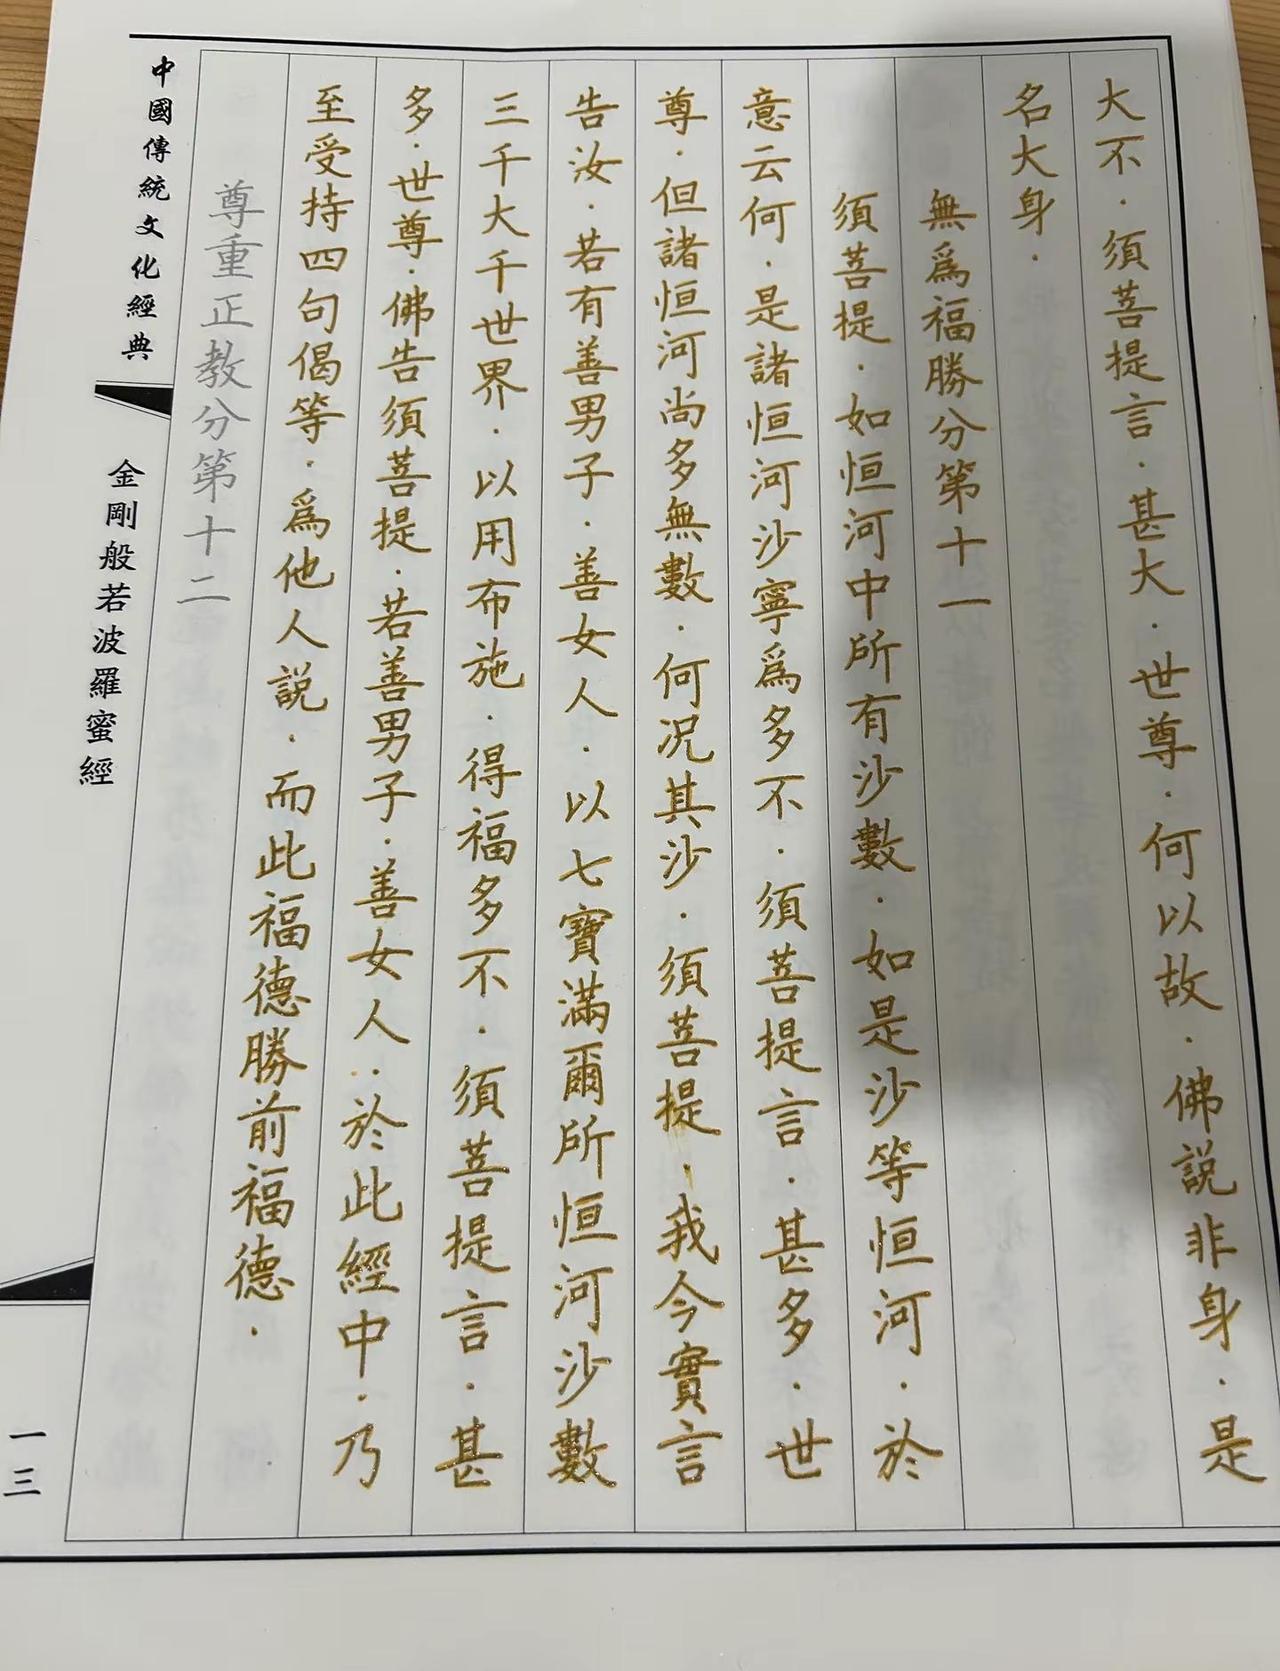 大不．須菩提言．甚大．世尊．何以故．佛説非身．是
名大身．
無爲福勝分第十一
須菩提．如恒河中所有沙數．如是沙等恒河．於
意云何．是諸恒河沙寧爲多不．須菩提言．甚多．世
尊．但諸恒河尚多無數．何况其沙．須菩提．我今實言
告汝．若有善男子．善女人．以七寶滿爾所恒河沙數
三千大千世界．以用布施．得福多不．須菩提言．甚
多．世尊．佛告須菩提．若善男子．善女人．．於此經中．乃
至受持四句偈等．爲他人説．而此福德勝前福德．
尊重正教分第十二
中國傳統文化經典
金剛般若波羅蜜經
一三